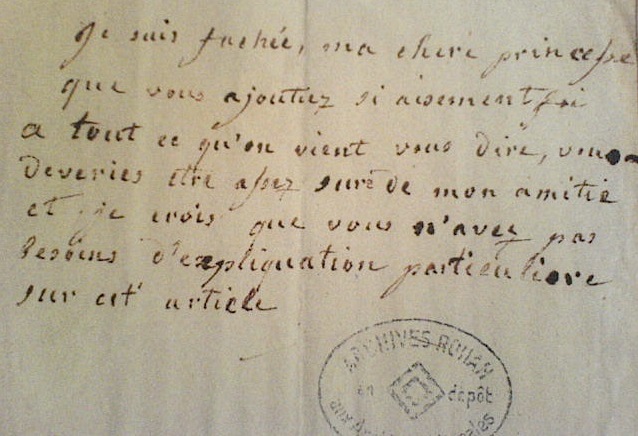 Je suis fachée, ma chere princesse
que vous ajoutiez si aisement foi
a tout ce qu'on vient vous dire, vous
deveries etre assez sure de mon amitie
et je crois que vous n'avez pas
besoins d'expliquation particuliere
sur cet article
ARCHIVES ROHAN
en dépôt
aux Archives